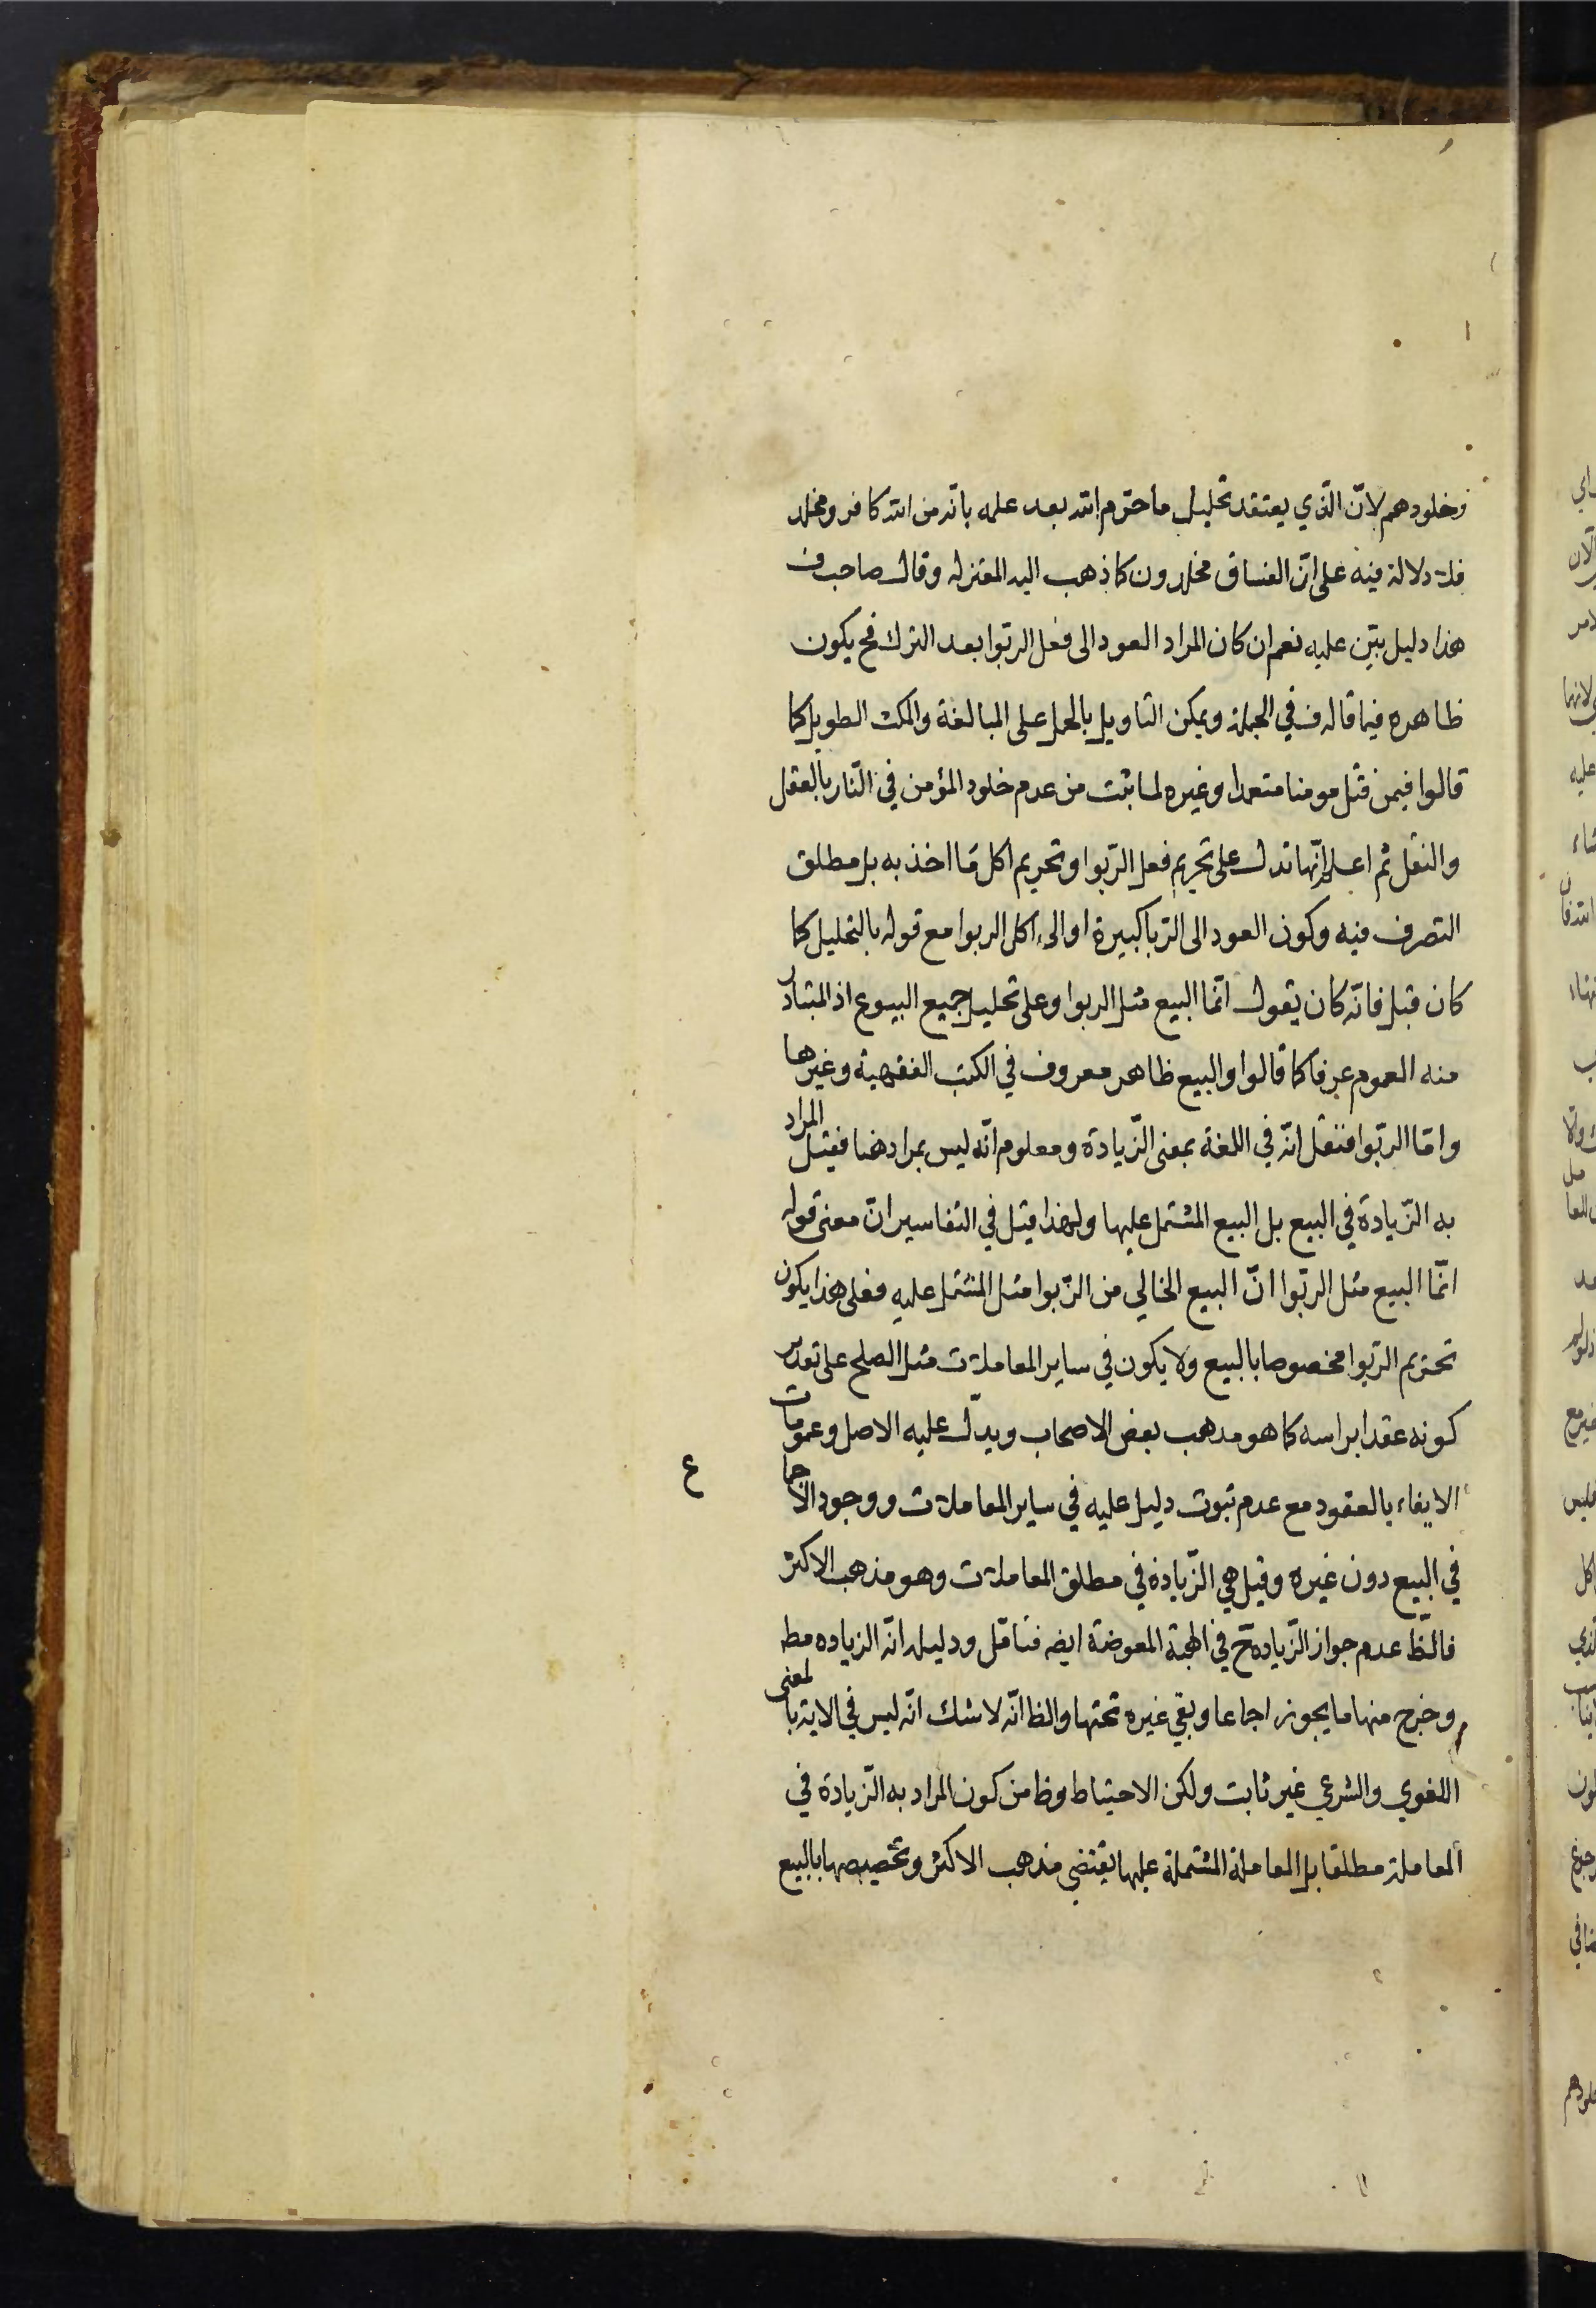 وخلودهم لانّ الذي يعتقد تحليل ما حرّم الله بعد علمه بانّه من الله كافر ومخلد
فلا دلالة فيه على انّ الفساق مخلدون كما ذهب اليه المعتزله وقال صاحب ف
هذا دليل بيّن عليه نعم ان كان المراد العود الى فعل الربوا بعد الترك فح يكون
ظاهره فيما قاله ف في الجملة ويمكن التاويل بالحمل على المبالغة والمكث الطويل كما
قالوا فيمن قتل مومنا متعمدا وغيره لما ثبت من عدم خلود المؤمن في النّار بالعقل
والنقل ثم اعلم انّها تدل على تحريم فعل الرّبوا وتحريم اكل ما اخذ به بل مطلق
التصرف فيه وكون العود الى الرّبا كبيرة او الى اكل الربوا مع قوله بالتحليل كما
كان قبل فانّه كان يقول انّما البيع مثل الربوا وعلى تحليل جميع البيوع اذ المتبادر
منه العموم عرفا كما قالوا والبيع ظاهر معروف في الكتب الفقهية وغيرها
وامّا الربّوا فنقل انّه في اللغة بمعنى الزّيادة ومعلوم انّه ليس بمراد هنا فقيل المراد
به الزّيادة في البيع بل البيع المشتمل عليها ولهذا قيل في التفاسير انّ معنى قوله
انّما البيع مثل الربّوا انّ البيع الخالي من الرّبوا مثل المشتمل عليه فعلى هذا يكون
تحريم الربّوا مخصوصا بالبيع ولا يكون في ساير المعاملات مثل الصلح على تقدير
كونه عقدا براسه كما هو مذهب بعض الاصحاب ويدلّ عليه الاصل وعمومات
الايفاء بالعقود مع عدم ثبوت دليل عليه في ساير المعاملات ووجود الاجما
ع
في البيع دون غيره وقيل هي الزّيادة في مطلق المعاملات وهو مذهب الاكثر
فالظّ عدم جواز الزّيادة ح في الهبة المعوضة ايضه فتامّل ودليله انّه الزياده مط
وخرج منها ما يجوز اجماعا وبقي غيره تحتها والظ انّه لا شك انّه ليس في الاية بالمعنى
اللغوي والشرعي غير ثابت ولكن الاحتياط وظ من كون المراد به الزّيادة في
المعاملة مطلقا بل المعاملة المشتملة عليها يقتضي مذهب الاكثر وتخصيصها بالبيع